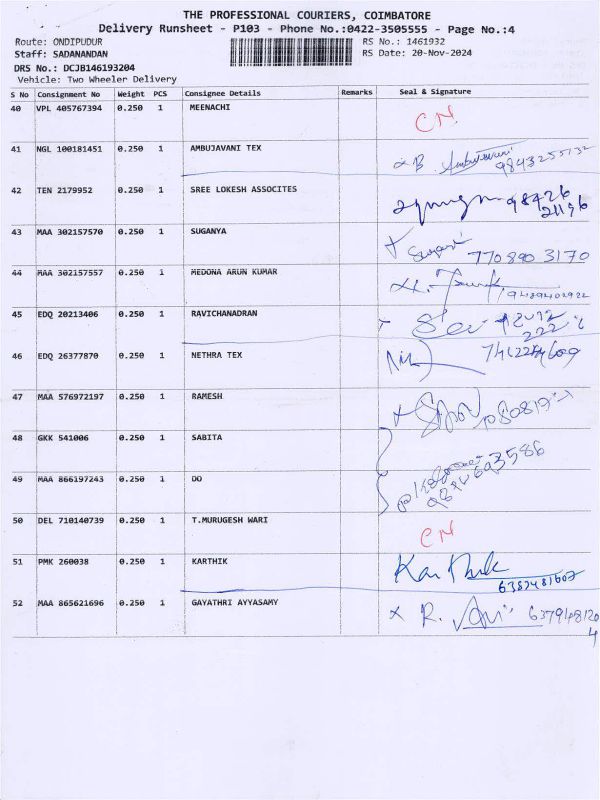 THE PROFESSIONAL COURIERS, COIMBATORE
Delivery Runsheet - P103 - Phone No.:0422-3505555 - Page No.:4
Route: ONDIPUDUR
RS No.: 1461932
Staff: SADANANDAN
RS Date: 20-Nov-2024
DRS No.: DCJB146193204
Vehicle: Two Wheeler Delivery
S No Consignment No Weight PCS Consignee Details Remarks Seal & Signature
40 VPL 405767394 0.250 1 MEENACHI CN
41 NGL 100181451 0.250 1 AMBUJAVANI TEX
42 TEN 2179952 0.250 1 SREE LOKESH ASSOCITES 98426
21196
43 MAA 302157570 0.250 1 SUGANYA 770890 3170
44 MAA 302157557 0.250 1 MEDONA ARUN KUMAR
45 EDQ 20213406 0.250 1 RAVICHANADRAN
46 EDQ 26377870 0.250 1 NETHRA TEX
47 MAA 576972197 0.250 1 RAMESH
48 GKK 541006 0.250 1 SABITA
49 MAA 866197243 0.250 1 DO
50 DEL 710140739 0.250 1 T.MURUGESH WARI CN
51 PMK 260038 0.250 1 KARTHIK Karthik
6382481602
52 MAA 865621696 0.250 1 GAYATHRI AYYASAMY x R. 637948120
4